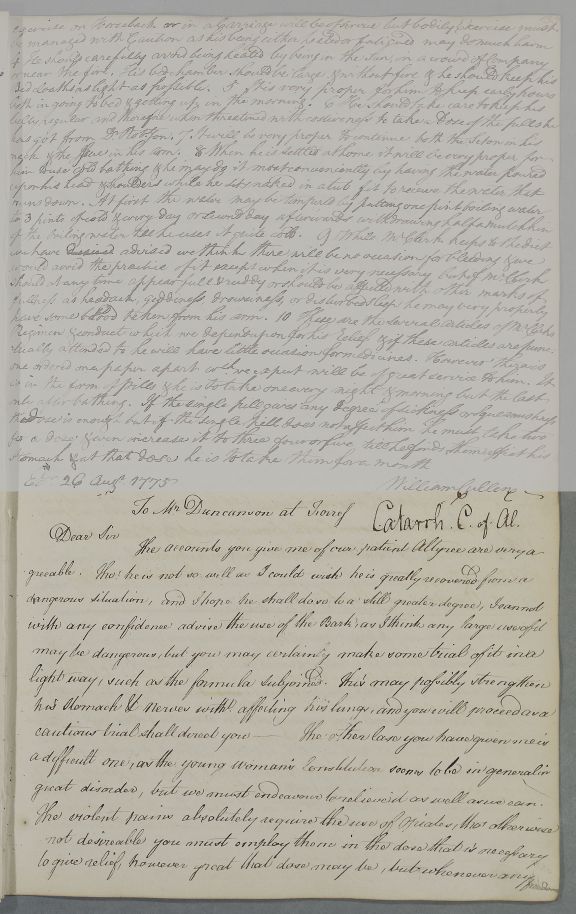 exercise on Horseback or in a Carriage will be of service but bodily Exercise must
be managed with Caution as his being either heated or fatigued may do much harm
4 He should carefully avoid being heated by being in the Sun, in a crowd of Company
or near the fire, His bed chamber should be large & without fire & he should keep his
Bed cloaths as light as possible. 5 It is very proper for him to keep early hours
both in going to bed & getting up in the morning. 6 He should take care to keep his
belly regular and therefore when threatened with costiveness to take a Dose of the pills he
has got from Dr 7. It will be very proper to continue both the Seton in his
neck & the Issue in his arm. 8 When he is settled at home it will be very proper for
him to use cold bathing & he may do it most conveniently by having the water poured
upon his head & shoulders while he sits naked in a tub fit to receive the water that
runs down. At first the water may be tempered by putting one pint boiling water
to 3 pints of cold & every day or second day afterwards withdrawing half a mutchkin
of the boiling water till he uses it quite cold. 9 While Mr Clerk keeps to the diet
we have advised we think there will be no occasion for bleeding & we
would avoid the practice of it except when it is very necessary but if Mr Clerk
should at any time appear full & ruddy or should be affected with other marks of
fullness as headach, giddiness, drowsiness, or disturbed sleep he may very properly
have some blood taken from his arm. 10 These are the several articles of Mr Clerks
Regimen & conduct which we depend upon for his Relief & if these articles are punc
tually attended to he will have little occasion for medicines. However there is
one ordered on a paper apart which we expect will be of great service to him. It
is in the form of pills & he is to take one every night & morning but the last
only after bathing. If the single pill gives any degree of sickness or squeamishness
that Dose is enough but if the single pill does not affect him he must take two
for a dose & even increase it to three four or five, till he finds them affect his
stomach & at that dose he is to take them for a month
Edr. 26 Augt 1775 William Cullen
To Mr Duncanson at Catarrh. C. of Al.
Dear Sir
The accounts you give me of our patient are very a-
greeable. Tho' he is not so well as I could wish he is greatly recovered from a
dangerous situation, and I hope he shall do so to a still greater degree, I cannot
with any confidence advise the use of the Bark as I think any large use of it
may be dangerous, but you may certainly make some trial of it in a
light way, such as the formula subjoined. This may possibly strengthen
his Stomach & Nerves witht affecting his lungs, and you will proceed as a
cautious trial shall direct you — The other Case you have given me is
a difficult one, as the young woman's Constitution seems to be in general in
great disorder, but we must endeavour to relieve it as well as we can.
The violent pains absolutely require the use of Opiates, tho' otherwise
not desireable you must employ them in the dose that is necessary
to give relief, however great that dose may be, but whenever any